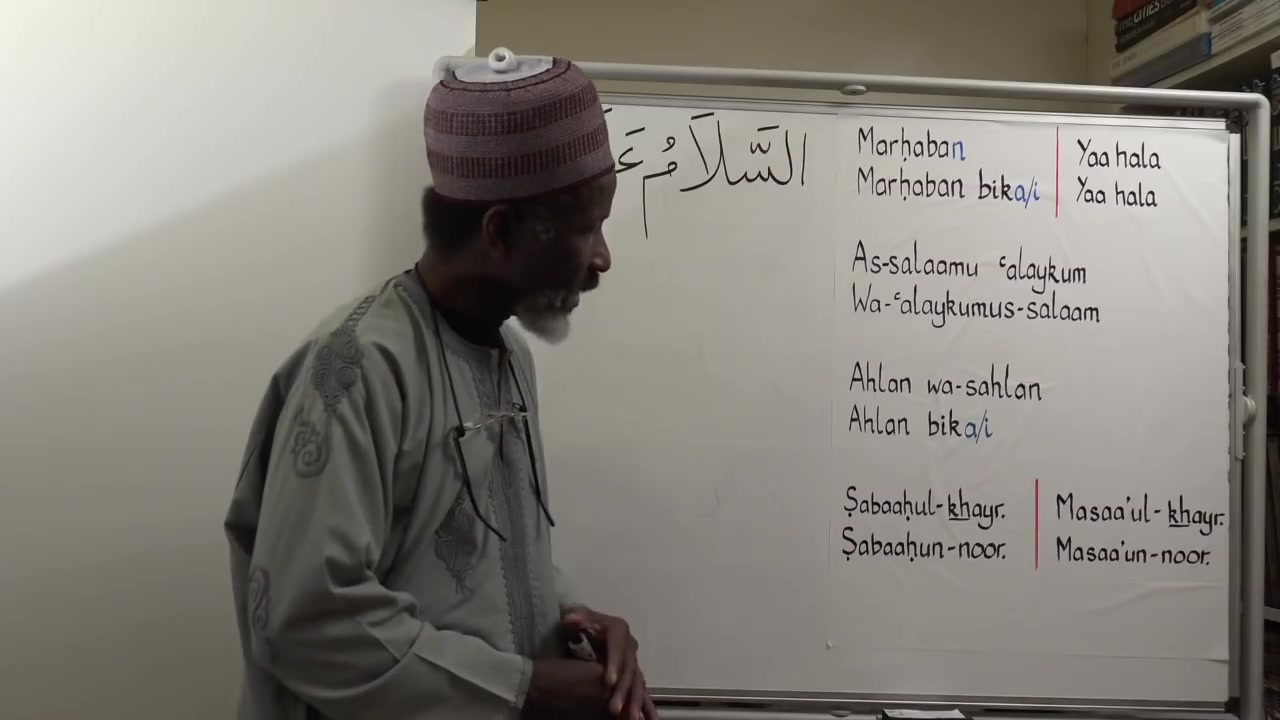 السَّلَامُ
Marḥaban
Marḥaban bika/i
Yaa hala
Yaa hala
As-salaamu ʿalaykum
Wa-ʿalaykumus-salaam
Ahlan wa-sahlan
Ahlan bika/i
Ṣabaaḥul-khayr.
Ṣabaaḥun-noor.
Masaa'ul-khayr.
Masaa'un-noor.
CITIES